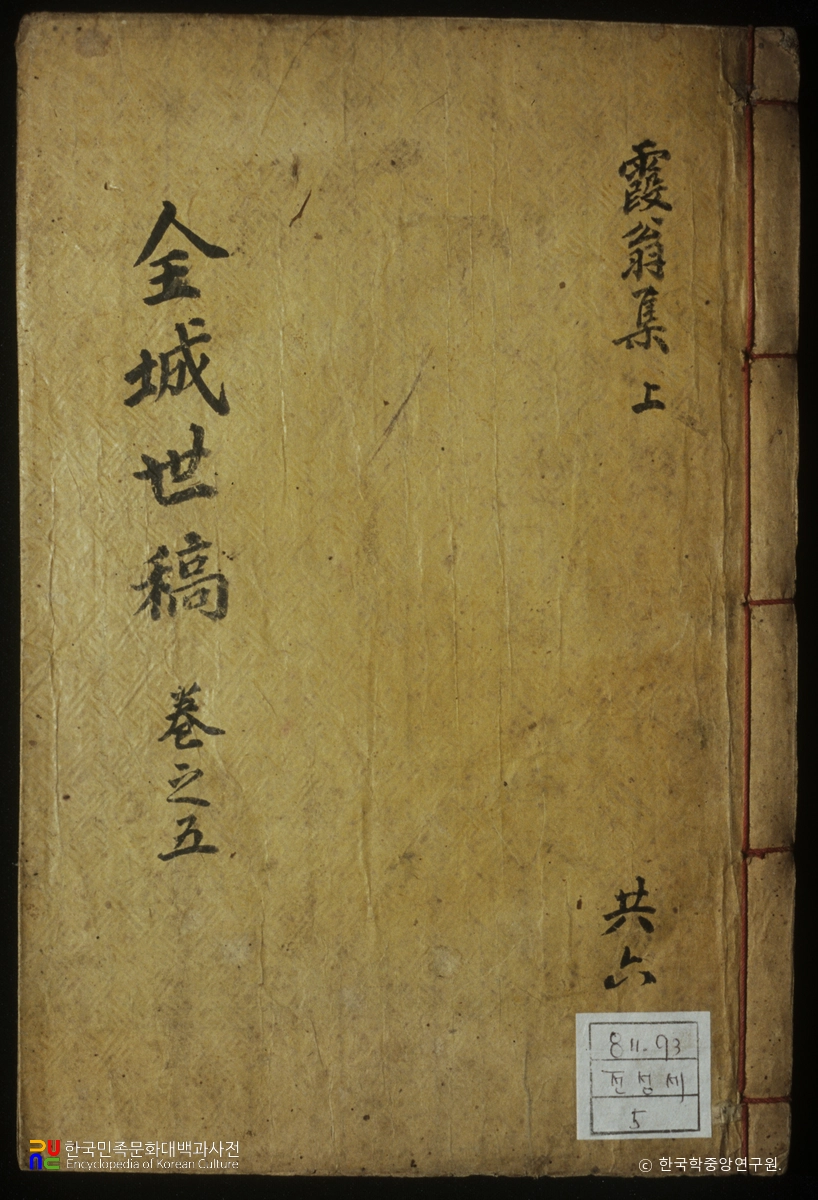 霞翁集 上
共六
全城世稿 卷之五
811.93
전성세
5
한국민족문화대백과사전
Encyclopedia of Korean Culture
ⓒ 한국학중앙연구원.